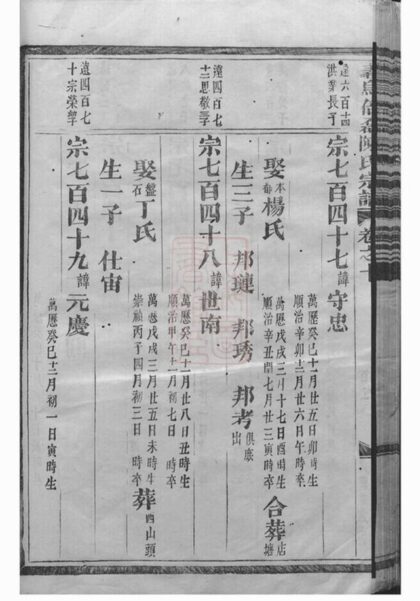 遠六百十四
洪業長子
宗七百四十七諱守忠
萬曆癸巳十一月廿五日卯時生
順治辛卯十二月廿六日午時卒
娶本都楊氏
萬曆戊戌三月十七日酉時生
順治辛丑閏七月廿三寅時卒
合葬店塘
生三子 邦璉 邦琇 邦考俱康出
遠四百七
十二思敬子
宗七百四十八諱世南
萬曆癸巳十一月廿八日丑時生
順治甲午十二月初七日 時卒
娶盤石丁氏
萬曆戊戌三月廿五日未時生
崇禎丙子四月初三日 時卒
葬西山頭
生一子 仕宙
遠四百七
十宗榮子
宗七百四十九諱元慶
萬歷癸巳十二月初一日寅時生
陳氏宗譜